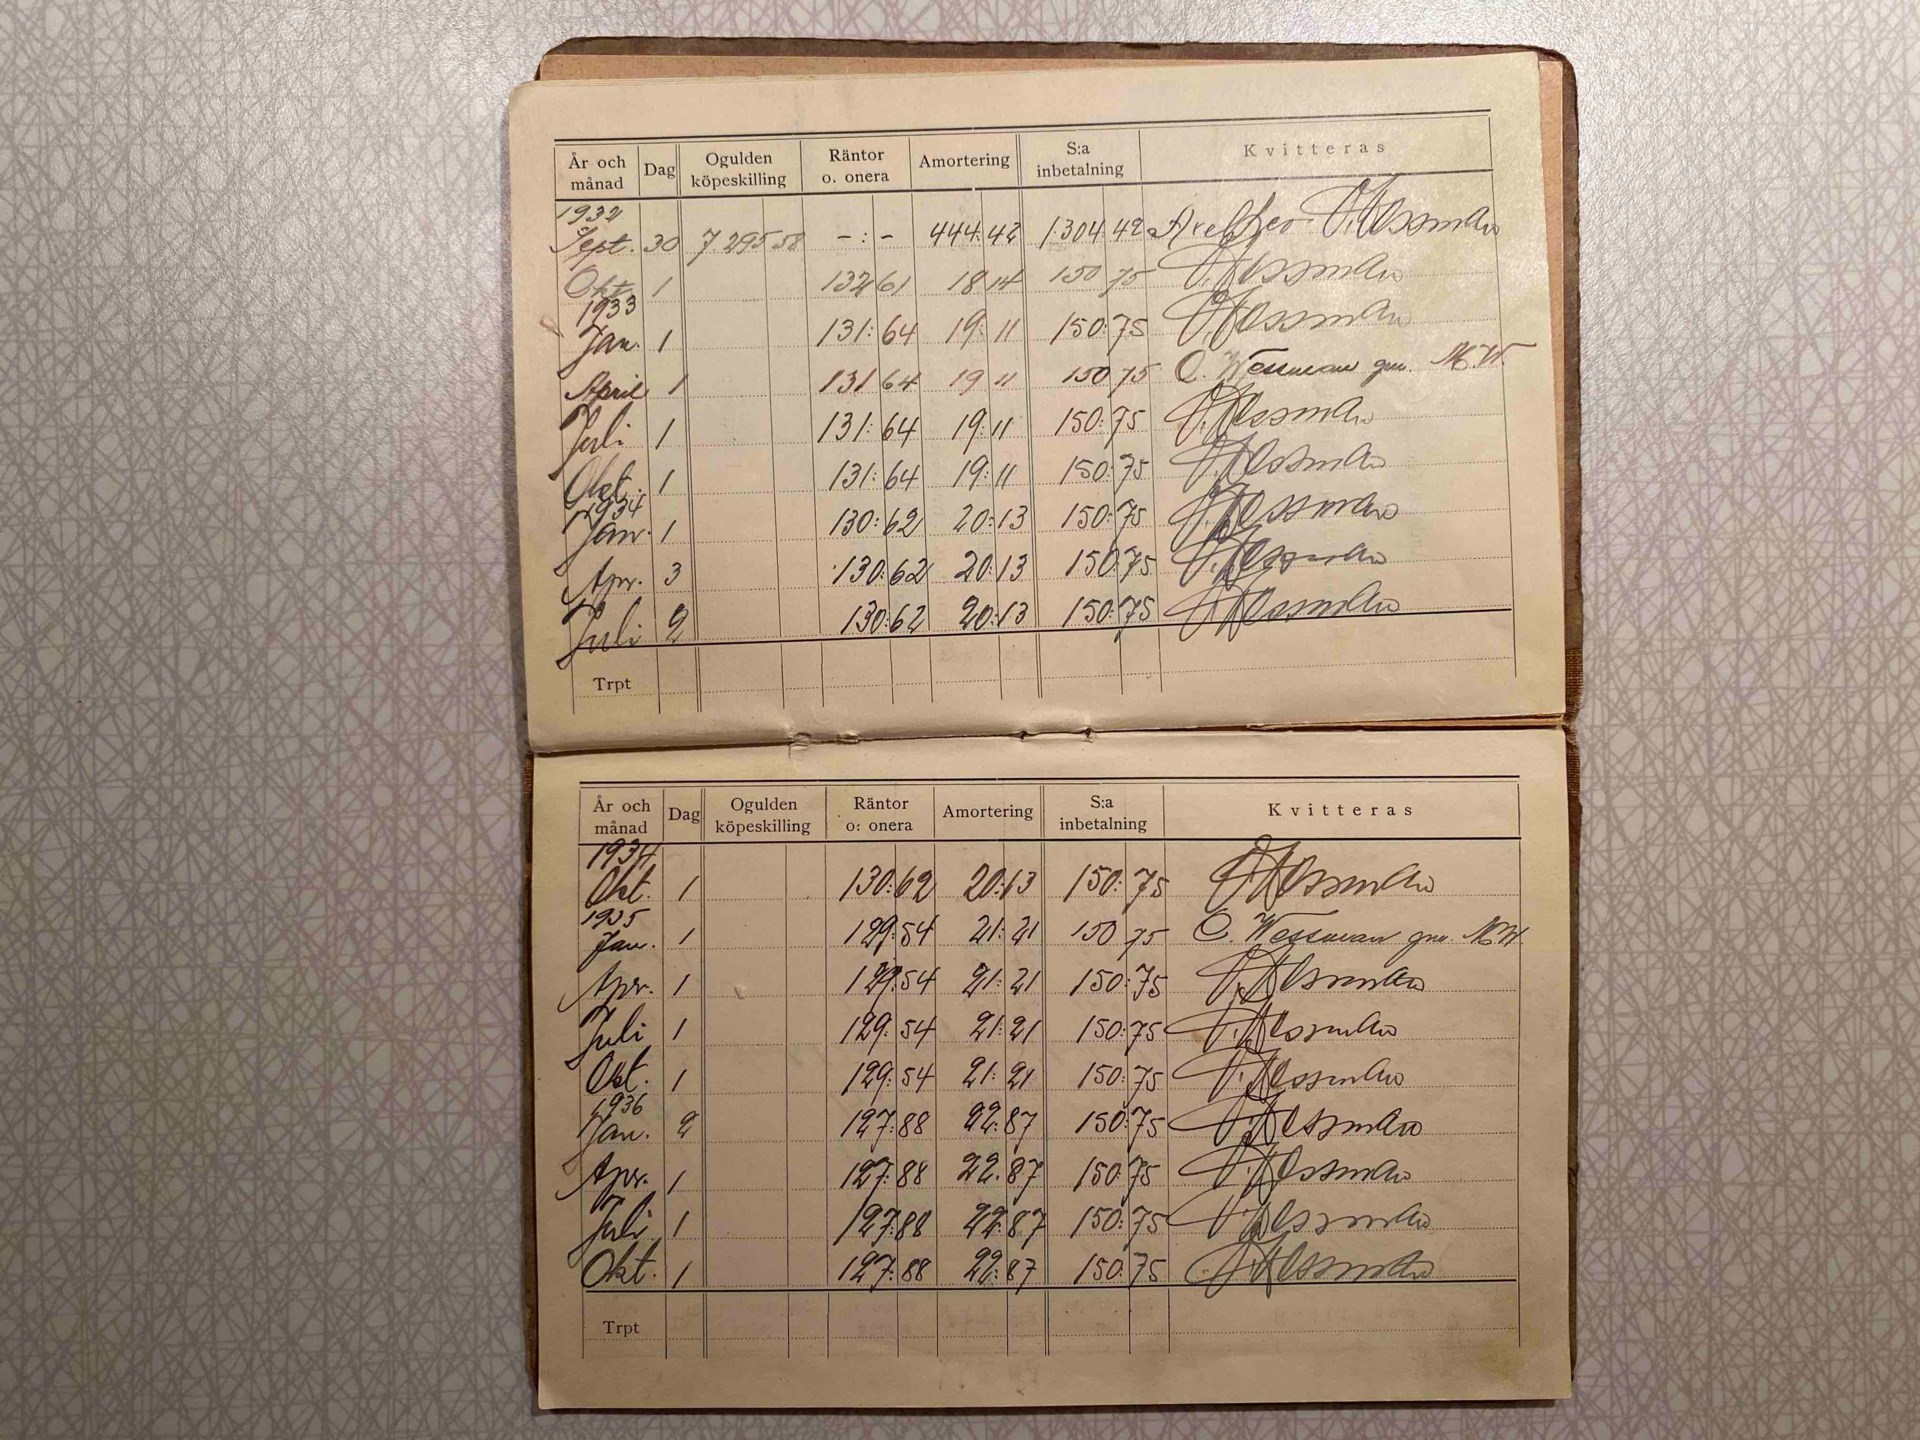 År och månad Dag Ogulden köpeskilling Räntor o. onera Amortering S:a inbetalning Kvitteras
1932
Sept. 30 7 295 58 - : - 444: 42 1304 42 Axel Leo Wessman
Okt. 1 132 61 18 14 150 75 Wessman
1933
Jan. 1 131: 64 19: 11 150: 75 Wessman
April 1 131 64 19 11 150 75 C. Wessman gm. M.W.
Juli 1 131: 64 19: 11 150: 75 Wessman
Okt. 1 131: 64 19: 11 150: 75 Wessman
1934
Jan. 1 130: 62 20: 13 150: 75 Wessman
Apr. 3 130: 62 20: 13 150: 75 Wessman
Juli 2 130: 62 20: 13 150: 75 Wessman
Trpt
År och månad Dag Ogulden köpeskilling Räntor o: onera Amortering S:a inbetalning Kvitteras
1934
Okt. 1 130: 62 20: 13 150: 75 Wessman
1935
Jan. 1 129: 54 21: 21 150 75 C. Wessman gm. M.W.
Apr. 1 129: 54 21: 21 150: 75 Wessman
Juli 1 129: 54 21: 21 150: 75 Wessman
Okt. 1 129: 54 21: 21 150: 75 Wessman
1936
Jan. 2 127: 88 22: 87 150: 75 Wessman
Apr. 1 127: 88 22: 87 150: 75 Wessman
Juli 1 127: 88 22: 87 150: 75 Wessman
Okt. 1 127: 88 22: 87 150: 75 Wessman
Trpt